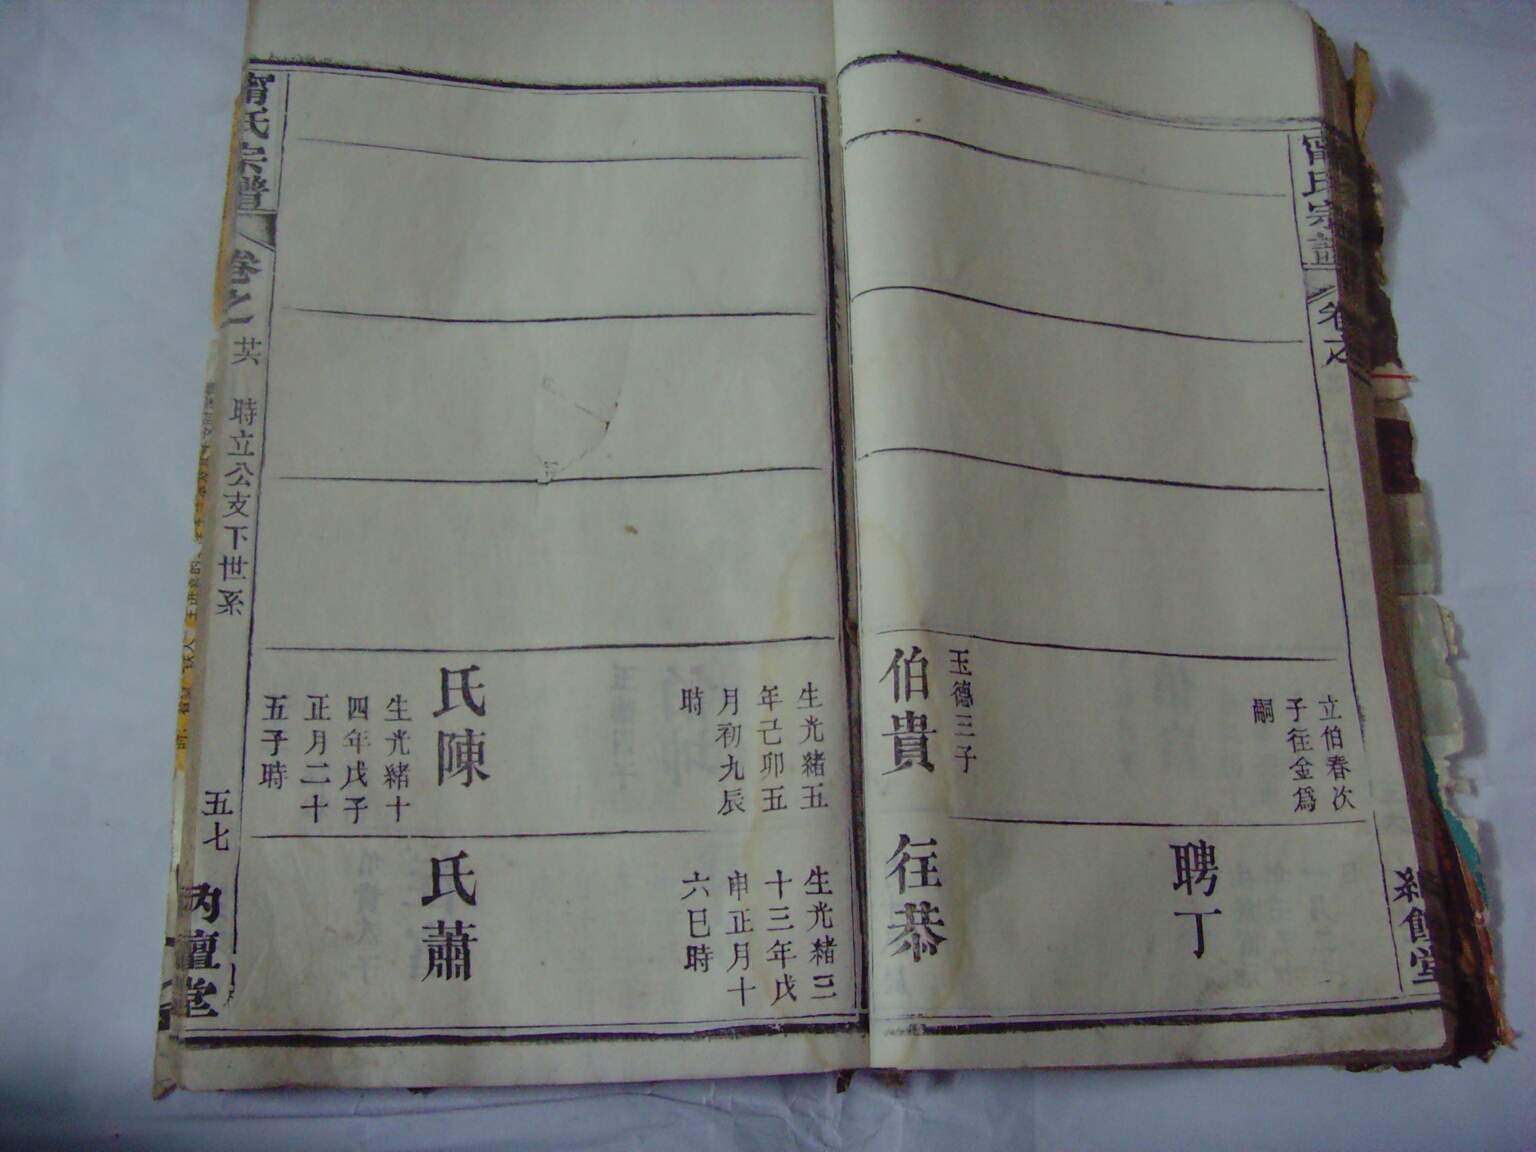 甯氏宗譜
卷之
立伯春次
子往金爲
嗣
聘丁
玉德三子
伯貴
往恭
生光緒五
年己卯五
月初九辰
時
生光緒二
十三年戊
申正月十
六巳時
氏陳
生光緒十
四年戊子
正月二十
五子時
氏蕭
甯氏宗譜
卷之
時立公支下世系
五七
堂